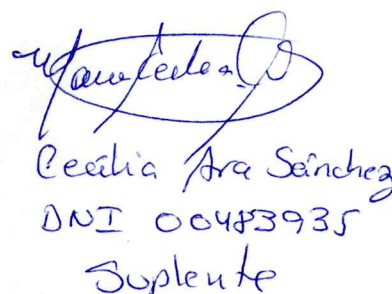 Cecilia Ara Sánchez
DNI 00483935
Suplente